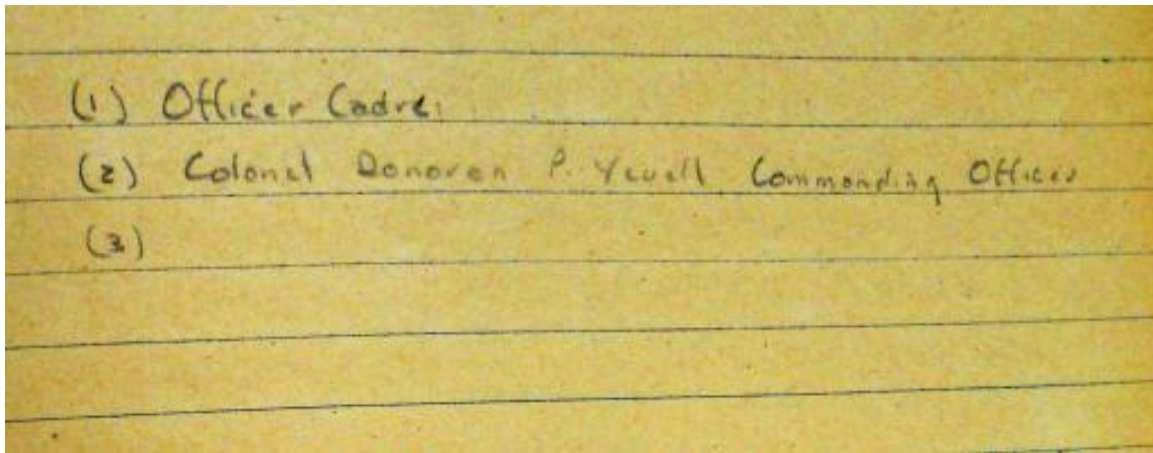 (1) Officer Cadre:
(2) Colonel Donovan P. Yeuell Commanding Officer
(3)